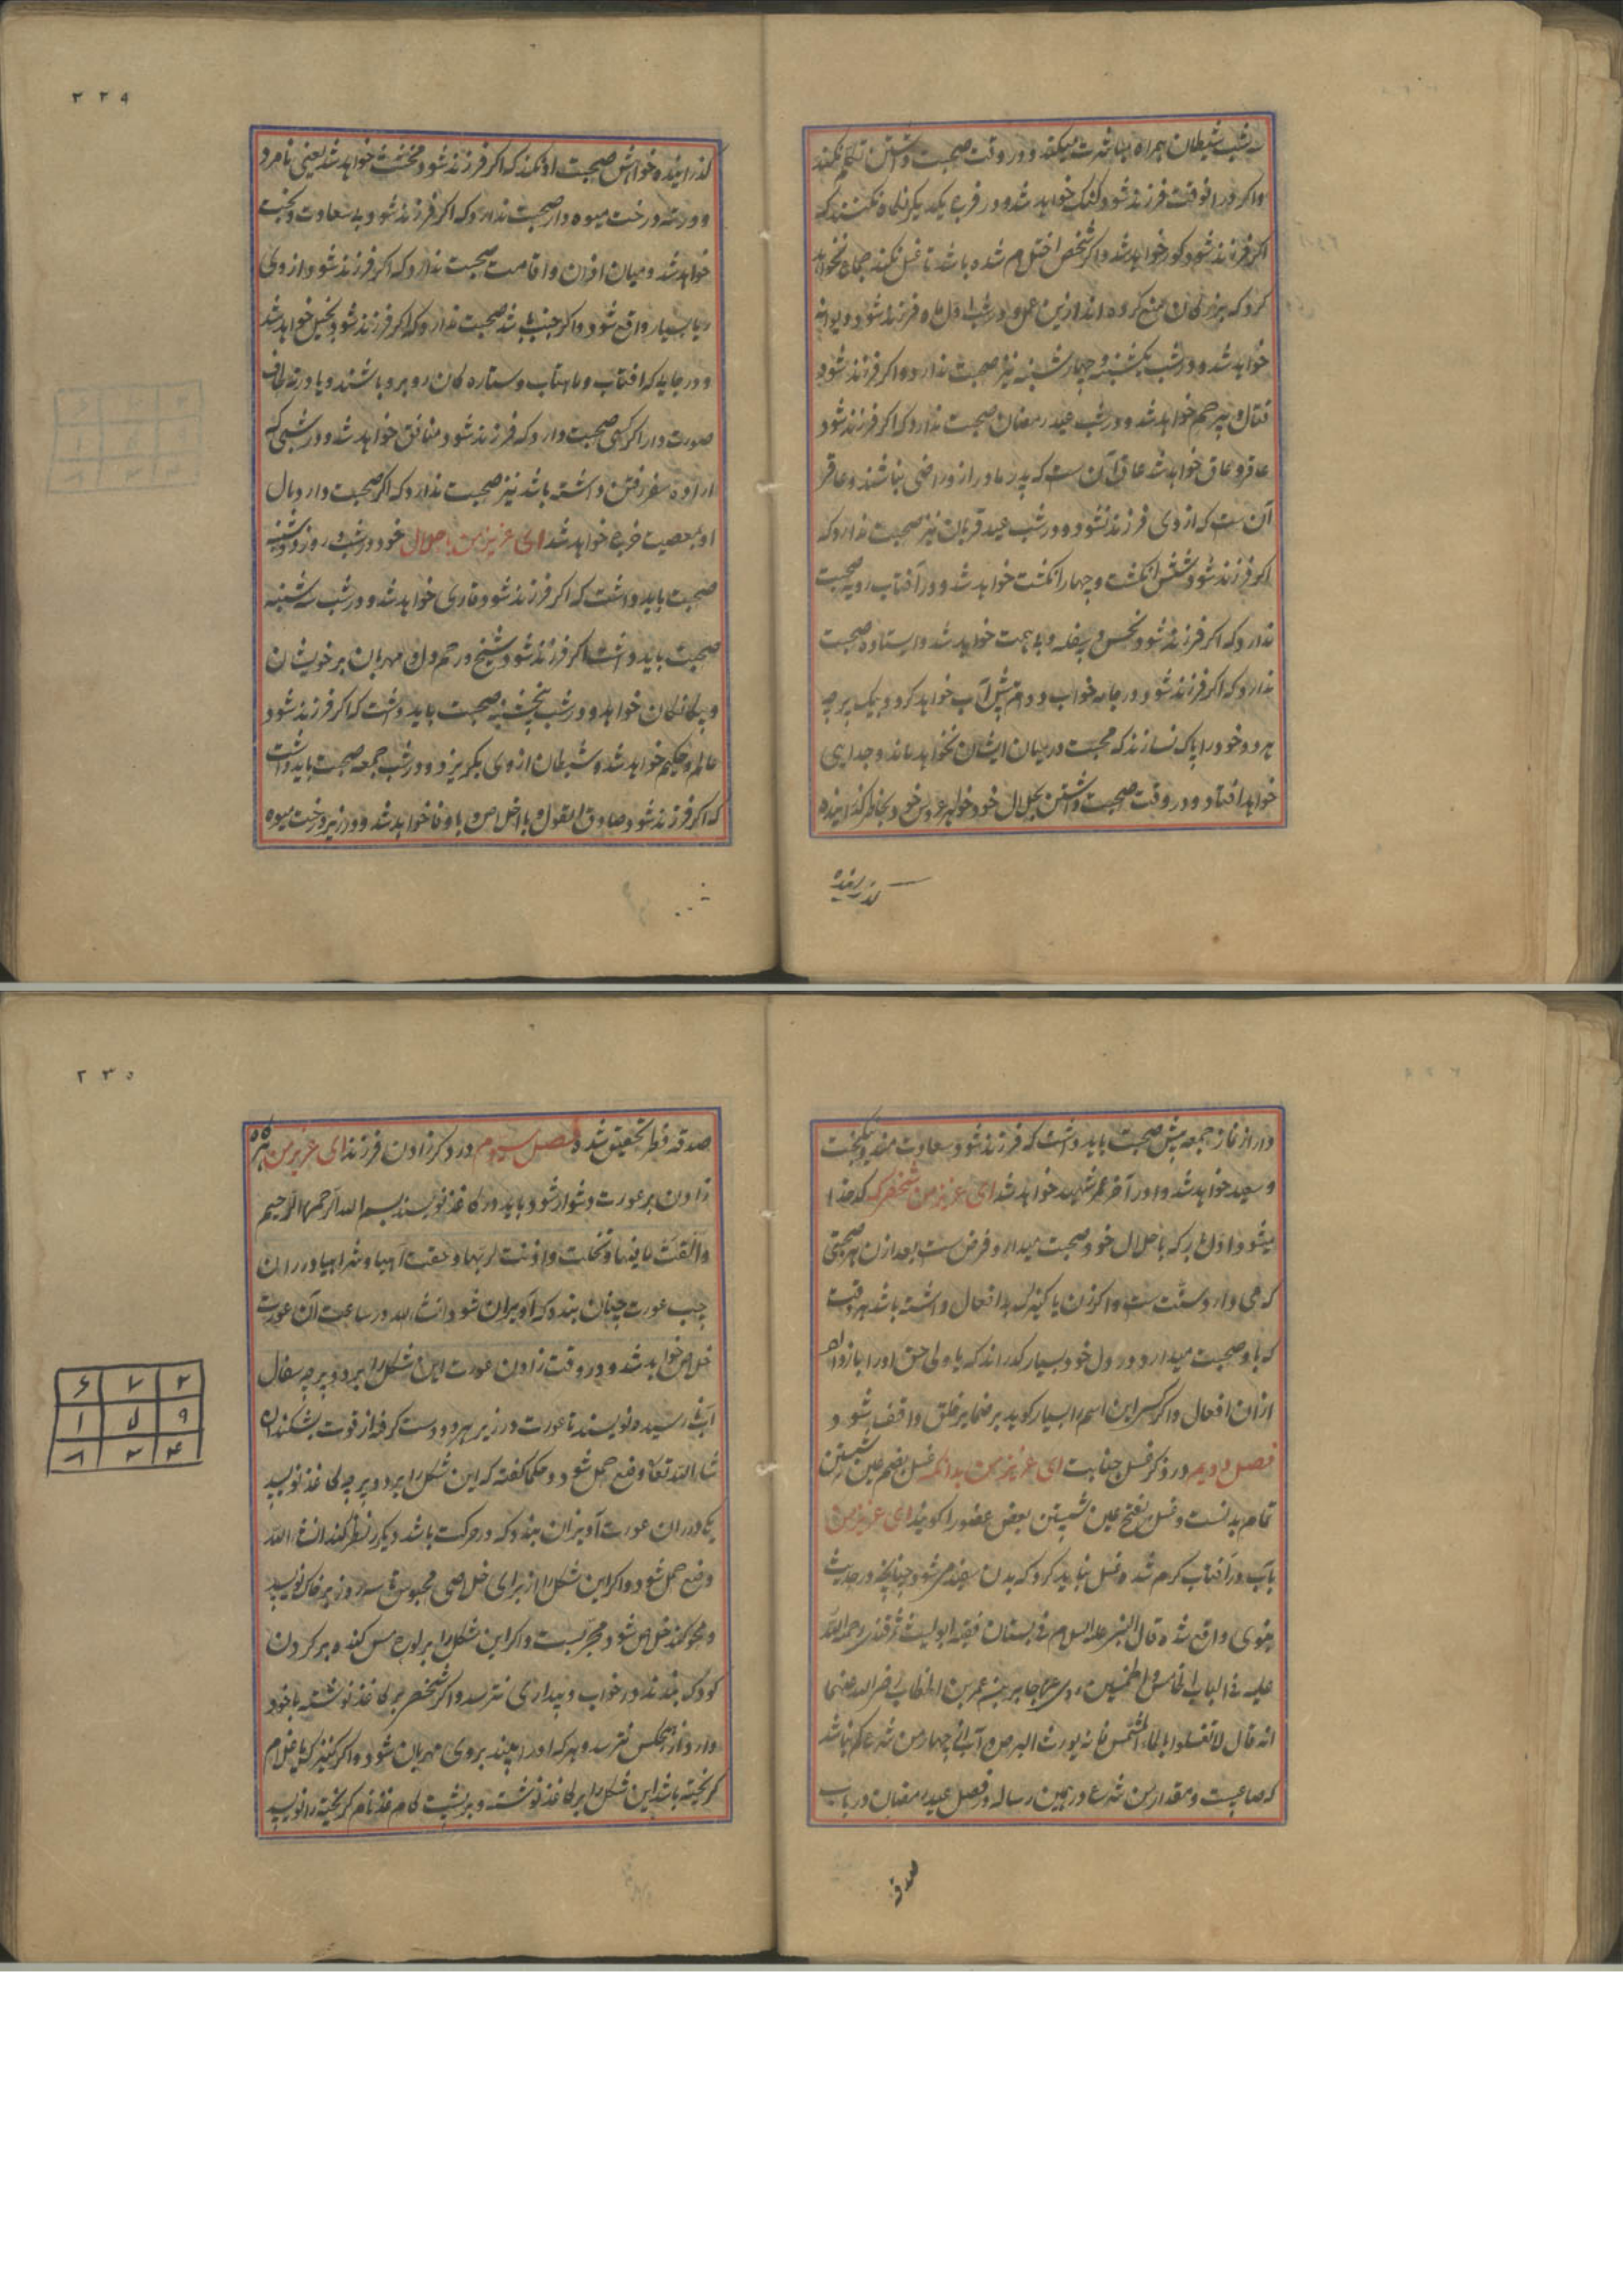 سه شب شیطان همراه مباشرت میکند و در وقت صحبت داشتن تکلم نکند
و اگر در انوقت فرزند شود گنگ خواهد شد و در فرج یکدیگر نگاه نکنند که
اگر فرزند شود کور خواهد شد و اگر شخص احتلام شده باشد تا غسل نکند جماع نخواهد
کرد که بزرگان منع کرده اند ازین عمل و در شب اول ماه فرزند شود دیوانه
خواهد شد و در شب یکشنبه و چهارشنبه نیز صحبت ندارد و اگر فرزند شود
قتال و بیرحم خواهد شد و در شب عید رمضان صحبت ندارد که اگر فرزند شود
عاقر و عاق خواهد شد عاق آن ست که پدر و مادر ازو راضی نباشند و عاقر
آن ست که از وی فرزند نشود و در شب عید قربان نیز صحبت ندارد که
اگر فرزند شود شش انگشت و چهار انگشت خواهد شد و در آفتاب رویه صحبت
ندارد که اگر فرزند شود نحس و سفله و بد بخت خواهد شد و ایستاده صحبت
ندارد که اگر فرزند شود در جامه خواب و دام پیش آب خواهد کرد و بیک پرچه
هر دو خود را پاک نسازند که محبت در میان ایشان نخواهد ماند و جدایی
خواهد افتاد و در وقت صحبت داشتن بحلال خود خواهر عروس خود بخاطر گذرانیده
گذرانیده
۲۲۹
گذرانیده خواهش صحبت او نکند که اگر فرزند شود مخنث خواهد شد یعنی نامرد
و در ته درخت میوه دار صحبت ندارد که اگر فرزند شود بی سعادت و بخت
خواهد شد و میان اذان و اقامت صحبت ندارد که اگر فرزند شود از وی
ریا بسیار واقع شود و اگر جنب باشد صحبت ندارد که اگر فرزند شود بخیل خواهد شد
و در جاییکه آفتاب و ماهتاب و ستاره گان روبرو باشند و یا در ته طاق
صورت دار اگر کسی صحبت دارد که فرزند شود منافق خواهد شد و در شبی که
اراده سفر رفتن داشته باشد نیز صحبت ندارد که اگر صحبت دارد مال
او بمعصیت خرج خواهد شد ای عزیز من با حلال خود در شب و روز دوشنبه
صحبت باید داشت که اگر فرزند شود قاری خواهد شد و در شب سه شنبه
صحبت باید داشت اگر فرزند شود شیخ و رحم دل و مهربان بر خویشان
و بیگانگان خواهد و در شب پنجشنبه صحبت باید داشت که اگر فرزند شود
عالم و حکیم خواهد شد و شیطان از وی بگریزد و در شب جمعه صحبت باید داشت
که اگر فرزند شود صادق القول و با اخلاص و با وفا خواهد شد و در زیر درخت میوه
دار از نماز جمعه پیش صحبت باید داشت که فرزند شود سعادتمند و نیکبخت
و سعید خواهد شد و در آخر عمر شهید خواهد شد ای عزیز من شخصی که کدخدا
میشود اول بار که با حلال خود صحبت میدارد فرض ست بعد ازان هر صحبتی
که می دارد سنت ست و اگر زن یا کنیزک بد افعال داشته باشد هر وقت
که با او صحبت میدارد در دل خود بسیار گذراند که یا ولی حق او را باز دار
ازان افعال و اگر کسی این اسم را بسیار گوید بر ضمایر خلق واقف شود و
فصل دویم در ذکر غسل جنابت ای عزیز من بدانکه غسل بضم عین شستن
تمام بدنست و غسل بفتح عین شستن بعض عضو را گویند ای عزیز من
بآب در آفتاب گرم شده غسل نباید کرد که بدن سفید میشود چنانچه در حدیث
نبوی واقع شده قال النبی علیه السلام فی بستان فقیه ابو لیث سمرقندی رحمة الله
علیه فی الباب الخامس و الخمسین روی عن جابر عن عمر بن الخطاب رضی الله عنهما
انه قال لا تغسلوا بالماء المشمس فانه یورث البرص و آب از چهار من شرعی کم نباشد
که صاعیست و مقدار من شرعی در همین رساله در فصل عید رمضان در باب
صدقه
۲۳۰
صدقه فطر تحقیق شده فصل سیوم در ذکر زادن فرزند ای عزیز من هر گاه
زادن بر عورت دشوار شود باید در کاغذ نویسند بسم الله الرحمن الرحیم
و القت ما فیها و تخلت و اذنت لربها و حقت اهیا و شراهیا و در ران
چپ عورت چنان بندد که آویزان شود انشاء الله در ساعت آن عورت
خلاص خواهد شد و در وقت زادن عورت این شکل را بر دو پرچه سفال
آب نارسیده نویسند تا عورت در زیر هر دو دست گرفته از قوت بشکند ان
شاء الله تعالی وضع حمل شود و حکما گفته که این شکل را بر دو پرچه کاغذ نویسد
یکی در ران عورت آویزان بندد که در حرکت باشد و دیگر را نظر کند انشاء الله
وضع حمل شود و اگر این شکل را از برای خلاصی محبوس تا سه روز بر خاک نویسد
و محو کند خلاص شود مجربست و اگر این شکل را بر لوح مس کنده بر گردن
کودک بندند در خواب و بیداری نترسد و اگر شخصی بر کاغذ نوشته با خود
دارد از هیچکس نترسد و هر که او را بیند بروی مهربان شود و اگر کنیزک یا غلام
گریخته باشد این شکل را بر کاغذ نوشته و بر پشت کاغذ نام گریخته را نویسد
۶ ۷ ۲
۱ ۵ ۹
۸ ۳ ۴